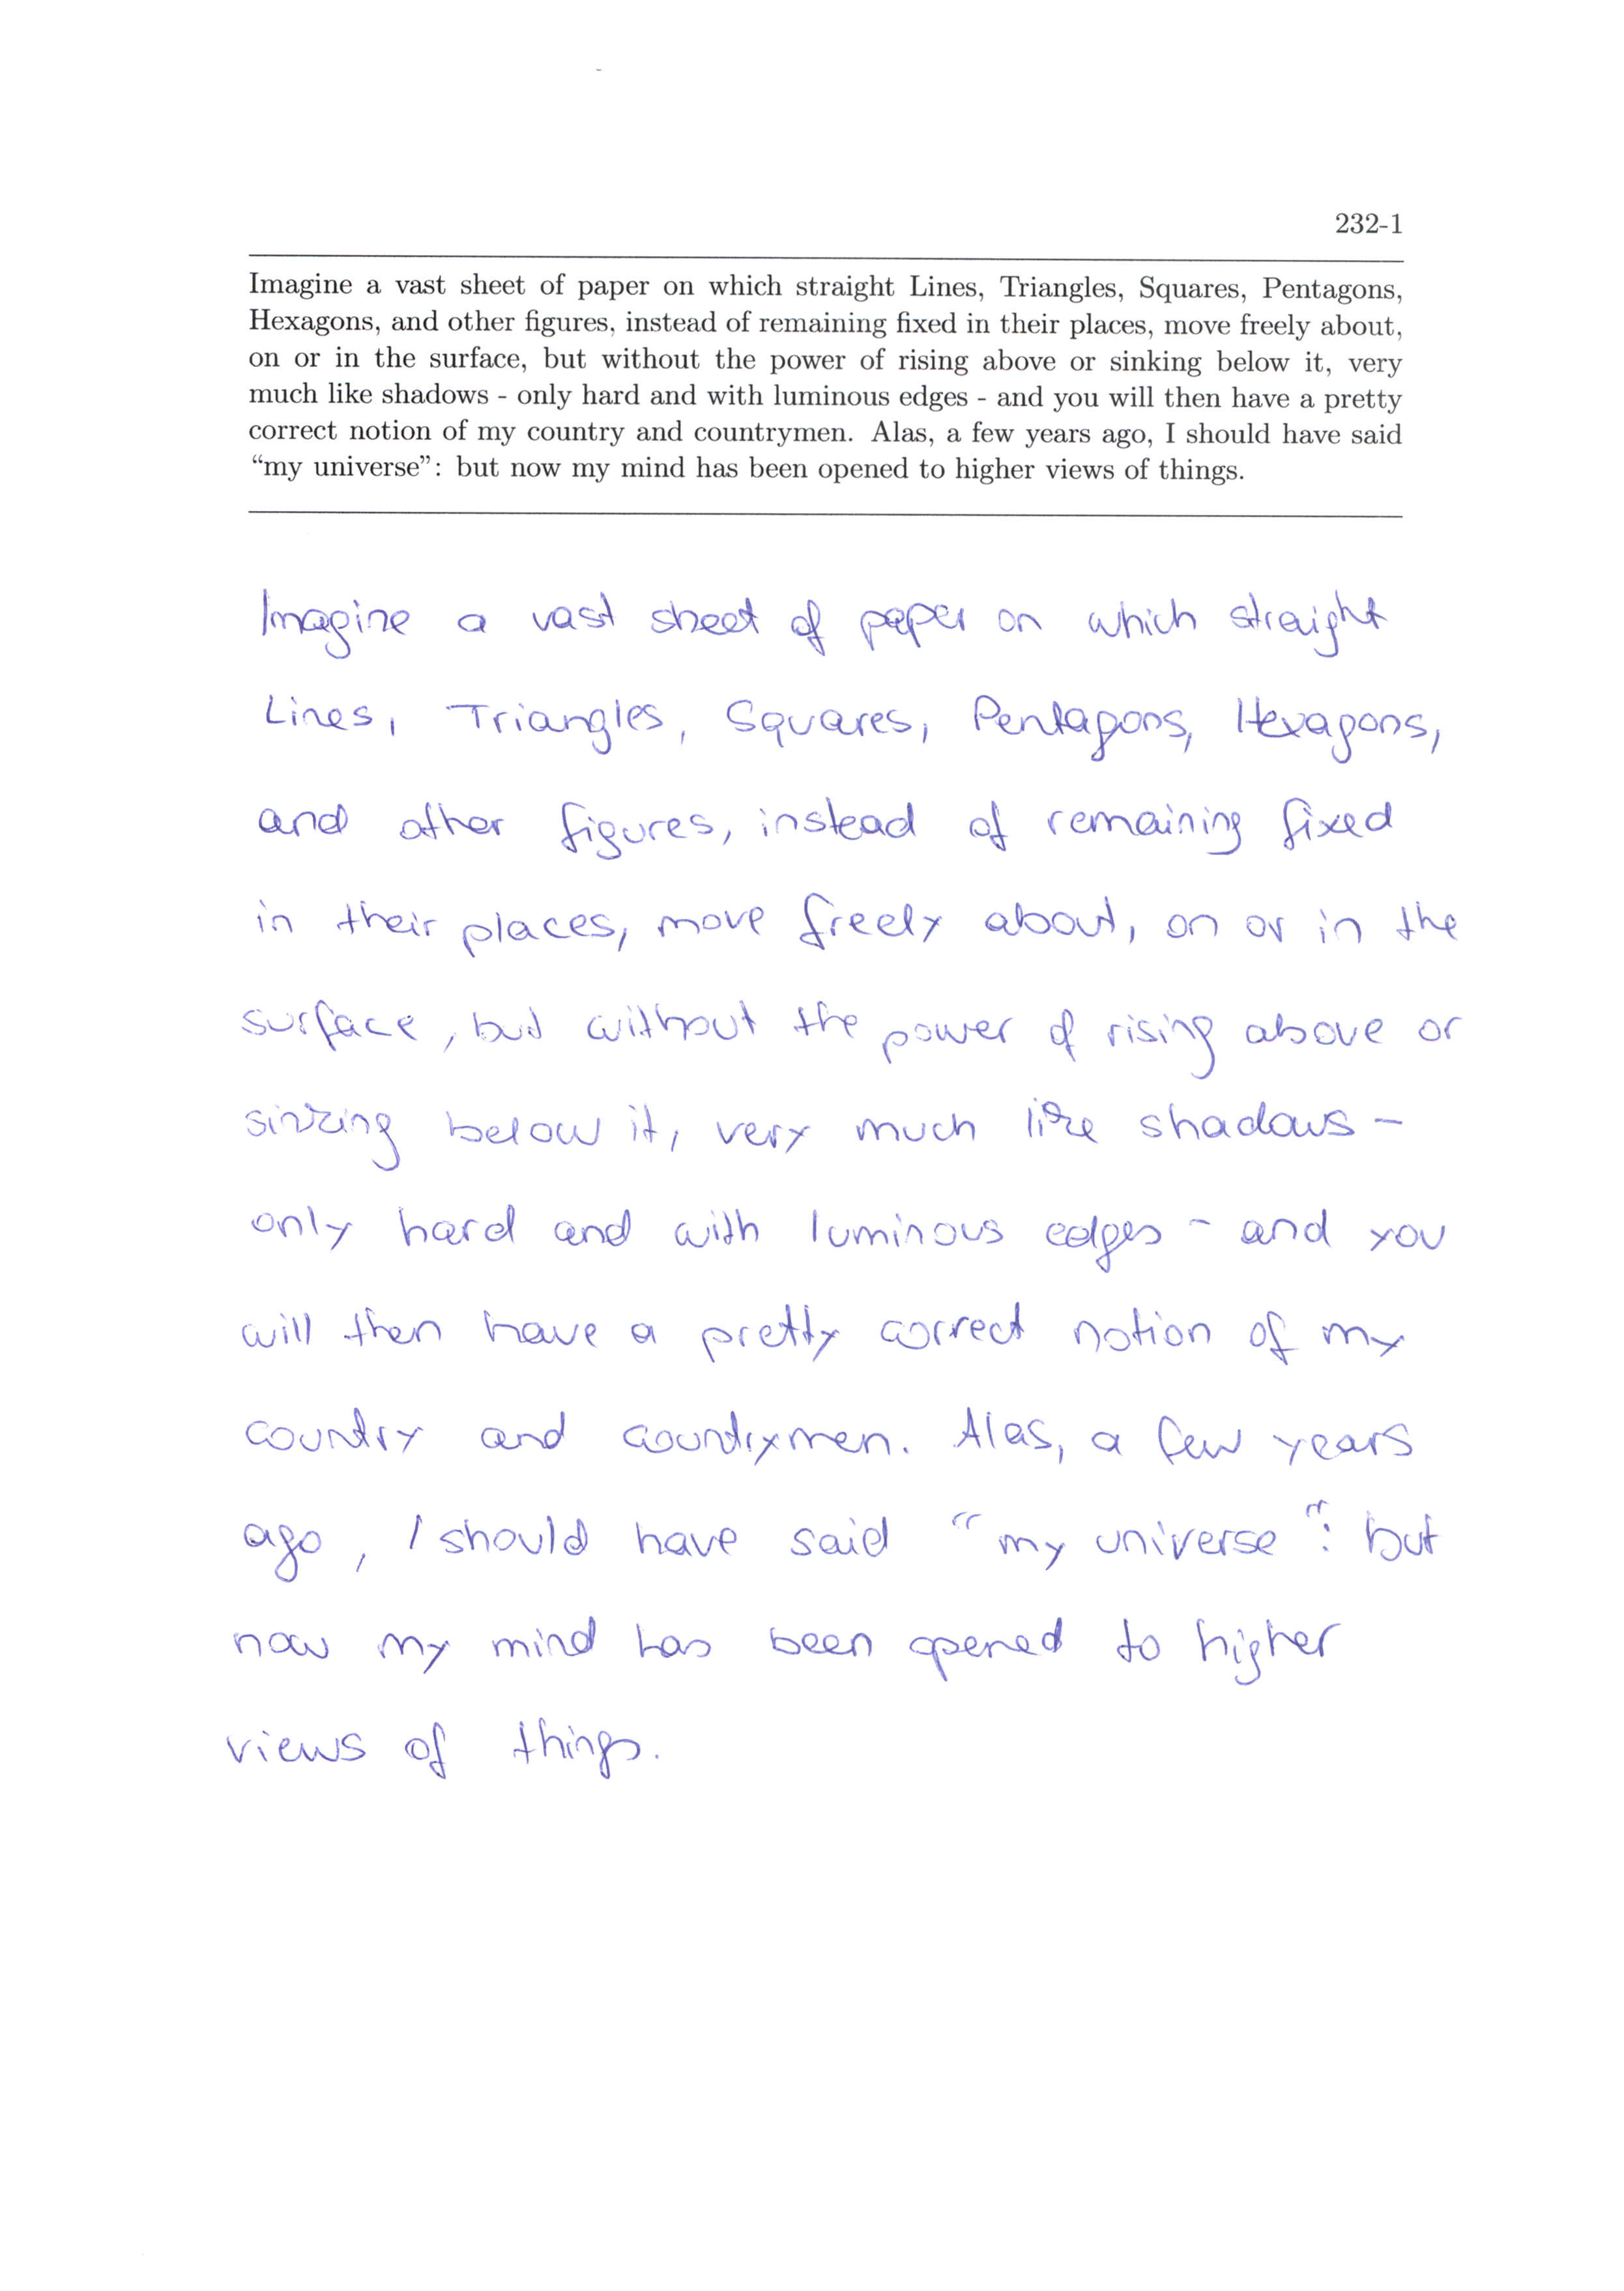 232-1
Imagine a vast sheet of paper on which straight Lines, Triangles, Squares, Pentagons,
Hexagons, and other figures, instead of remaining fixed in their places, move freely about,
on or in the surface, but without the power of rising above or sinking below it, very
much like shadows - only hard and with luminous edges - and you will then have a pretty
correct notion of my country and countrymen. Alas, a few years ago, I should have said
“my universe”: but now my mind has been opened to higher views of things.
Imagine a vast sheet of paper on which straight
Lines, Triangles, Squares, Pentagons, Hexagons,
and other figures, instead of remaining fixed
in their places, move freely about, on or in the
surface, but without the power of rising above or
sinking below it, very much like shadows -
only hard and with luminous edges - and you
will then have a pretty correct notion of my
country and countrymen. Alas, a few years
ago, I should have said “my universe”: but
now my mind has been opened to higher
views of things.